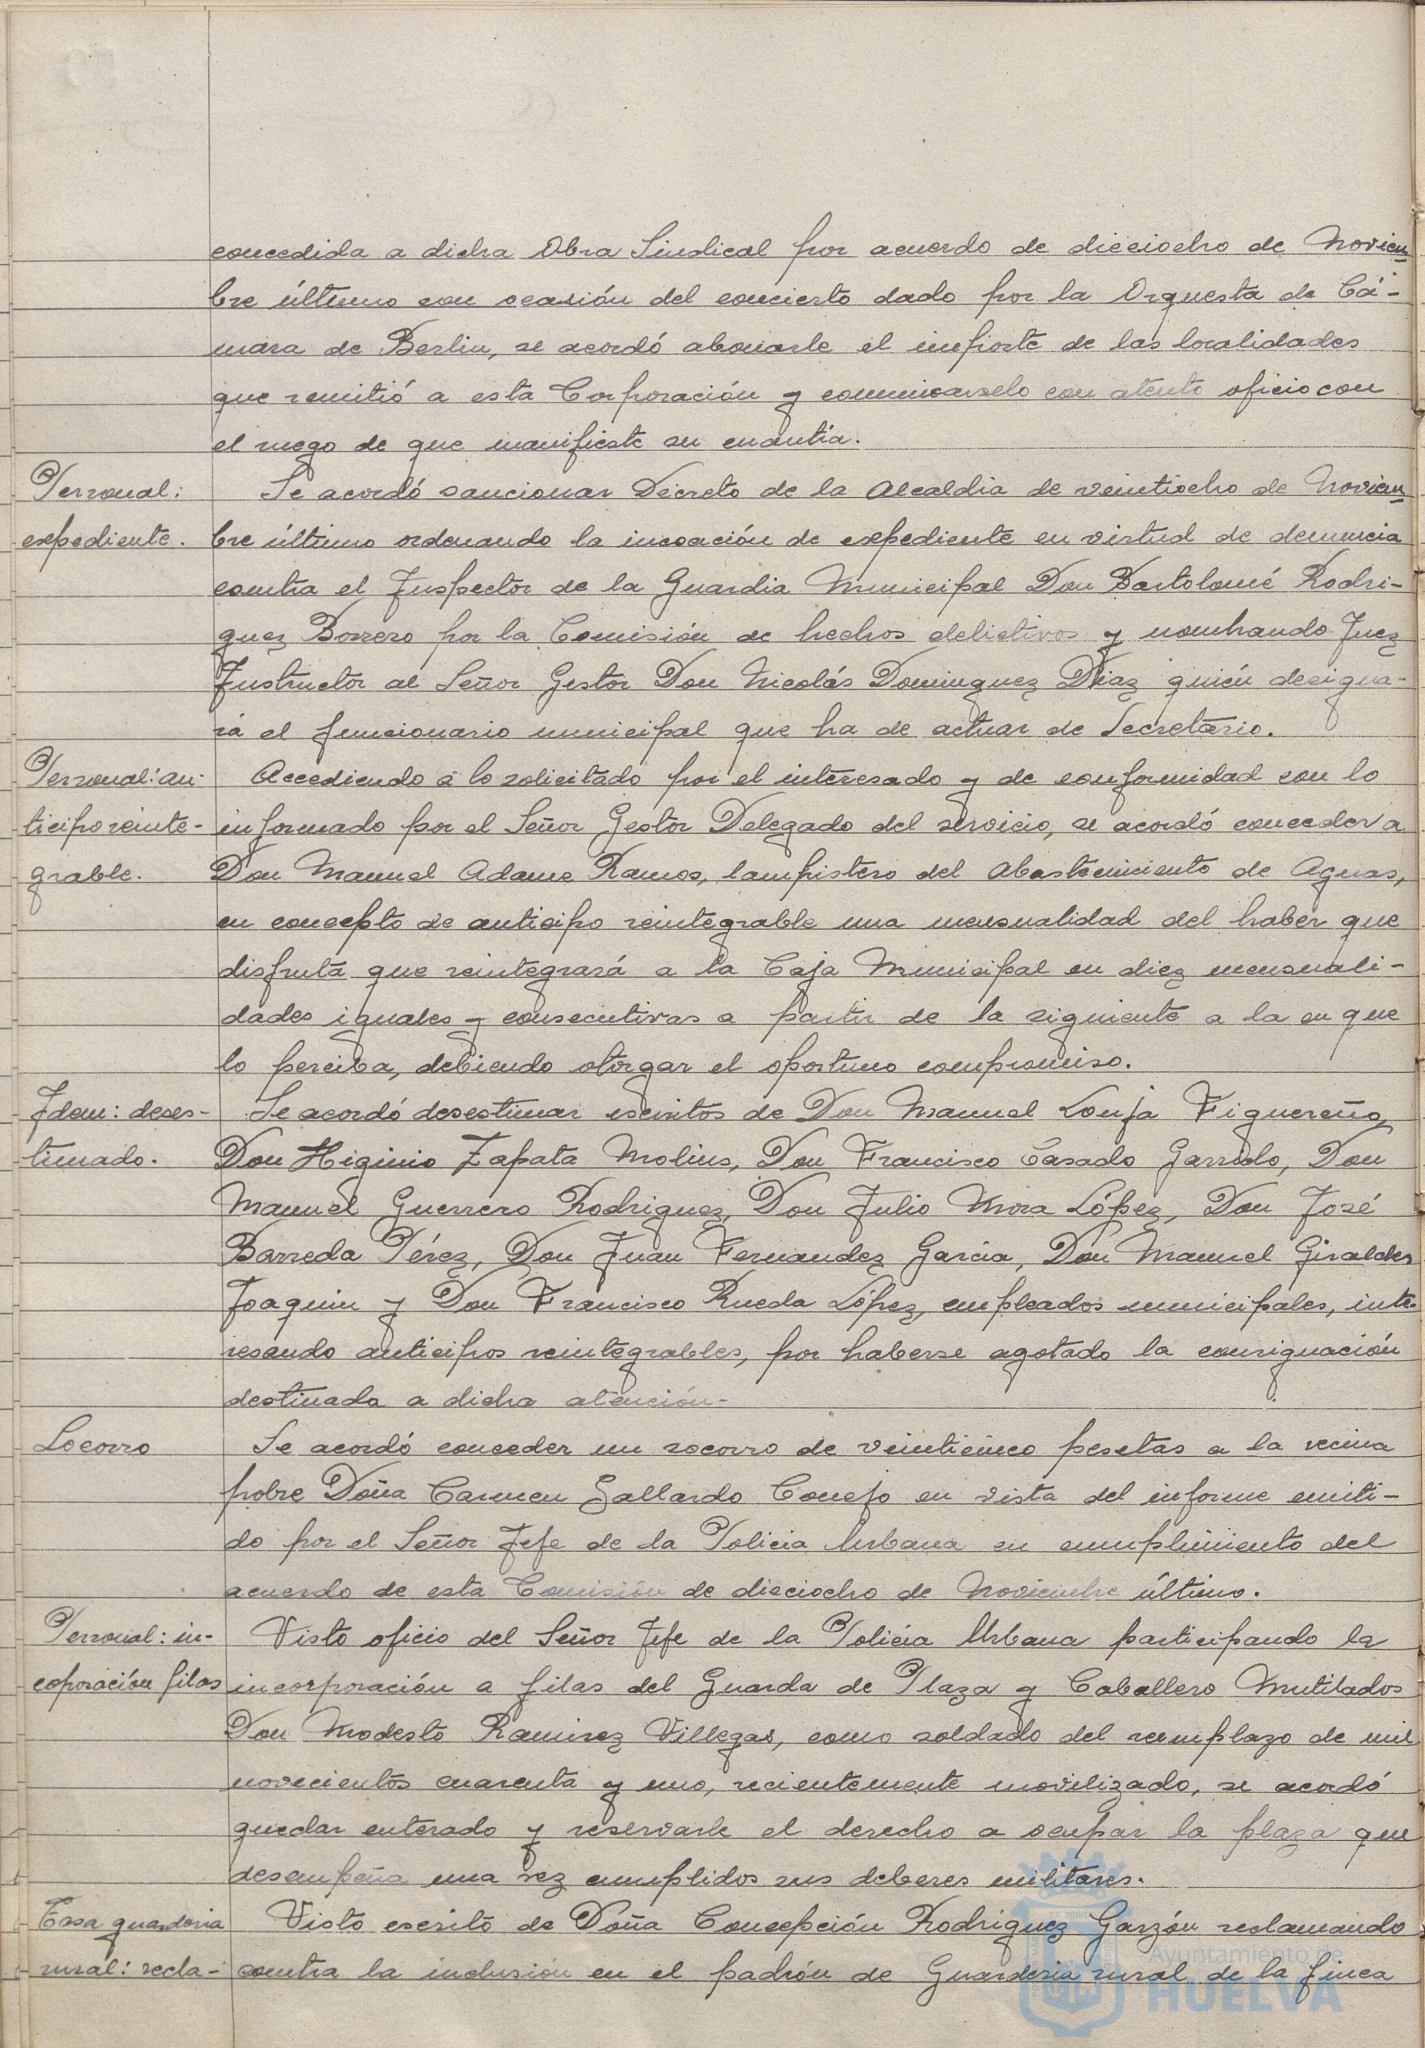 concedida a dicha Obra Sindical por acuerdo de dieciocho de Noviem
bre último con ocasión del concierto dado por la Orquesta de Cá-
mara de Berlin, se acordó abonarle el importe de las localidades
que remitió a esta Corporación y comunicarselo con atento oficio con
el ruego de que manifieste su cuantía.
Personal: Se acordó sancionar Decreto de la Alcaldia de veintiocho de Noviem
expediente. bre último ordenando la incoación de expediente en virtud de denuncia
contra el Inspector de la Guardia Municipal Don Bartolomé Rodri-
guez Borrero por la Comisión de hechos delictivos y nombrando Juez
Instructor al Señor Gestor Don Nicolás Dominguez Diaz quién designa-
rá el funcionario municipal que ha de actuar de Secretario.
Personal: an- Accediendo a lo solicitado por el interesado y de conformidad con lo
ticipo reinte- informado por el Señor Gestor Delegado del servicio, se acordó conceder a
grable. Don Manuel Adame Ramos, lampistero del Abastecimiento de Aguas,
en concepto de anticipo reintegrable una mensualidad del haber que
disfruta que reintegrará a la Caja Municipal en diez mensuali-
dades iguales y consecutivas a partir de la siguiente a la en que
lo perciba, debiendo otorgar el oportuno compromiso.
Idem: deses- Se acordó desestimar escritos de Don Manuel Lonja Figuereño,
timado. Don Higinio Zapata Molins, Don Francisco Casado Garrido, Don
Manuel Guerrero Rodriguez, Don Julio Mora López, Don José
Barreda Pérez, Don Juan Fernandez García, Don Manuel Giraldez
Joaquin y Don Francisco Rueda López, empleados municipales, inte-
resando anticipos reintegrables, por haberse agotado la consignación
destinada a dicha atención.-
Socorro Se acordó conceder un socorro de veinticinco pesetas a la vecina
pobre Doña Carmen Gallardo Conejo en vista del informe emiti-
do por el Señor Jefe de la Policia Urbana en cumplimiento del
acuerdo de esta Comisión de dieciocho de Noviembre último.
Personal: in- Visto oficio del Señor Jefe de la Policía Urbana participando la
coporación filas incorporación a filas del Guarda de Plaza y Caballero Mutilados
Don Modesto Ramirez Villegas, como soldado del reemplazo de mil
novecientos cuarenta y uno, recientemente movilizado, se acordó
quedar enterado y reservarle el derecho a ocupar la plaza que
desempeña una vez cumplidos sus deberes militares.
Tasa guarderia Visto escrito de Doña Concepción Rodriguez Garzón reclamando
rural: recla- contra la inclusión en el padrón de Guarderia rural de la finca
Ayuntamiento de
HUELVA